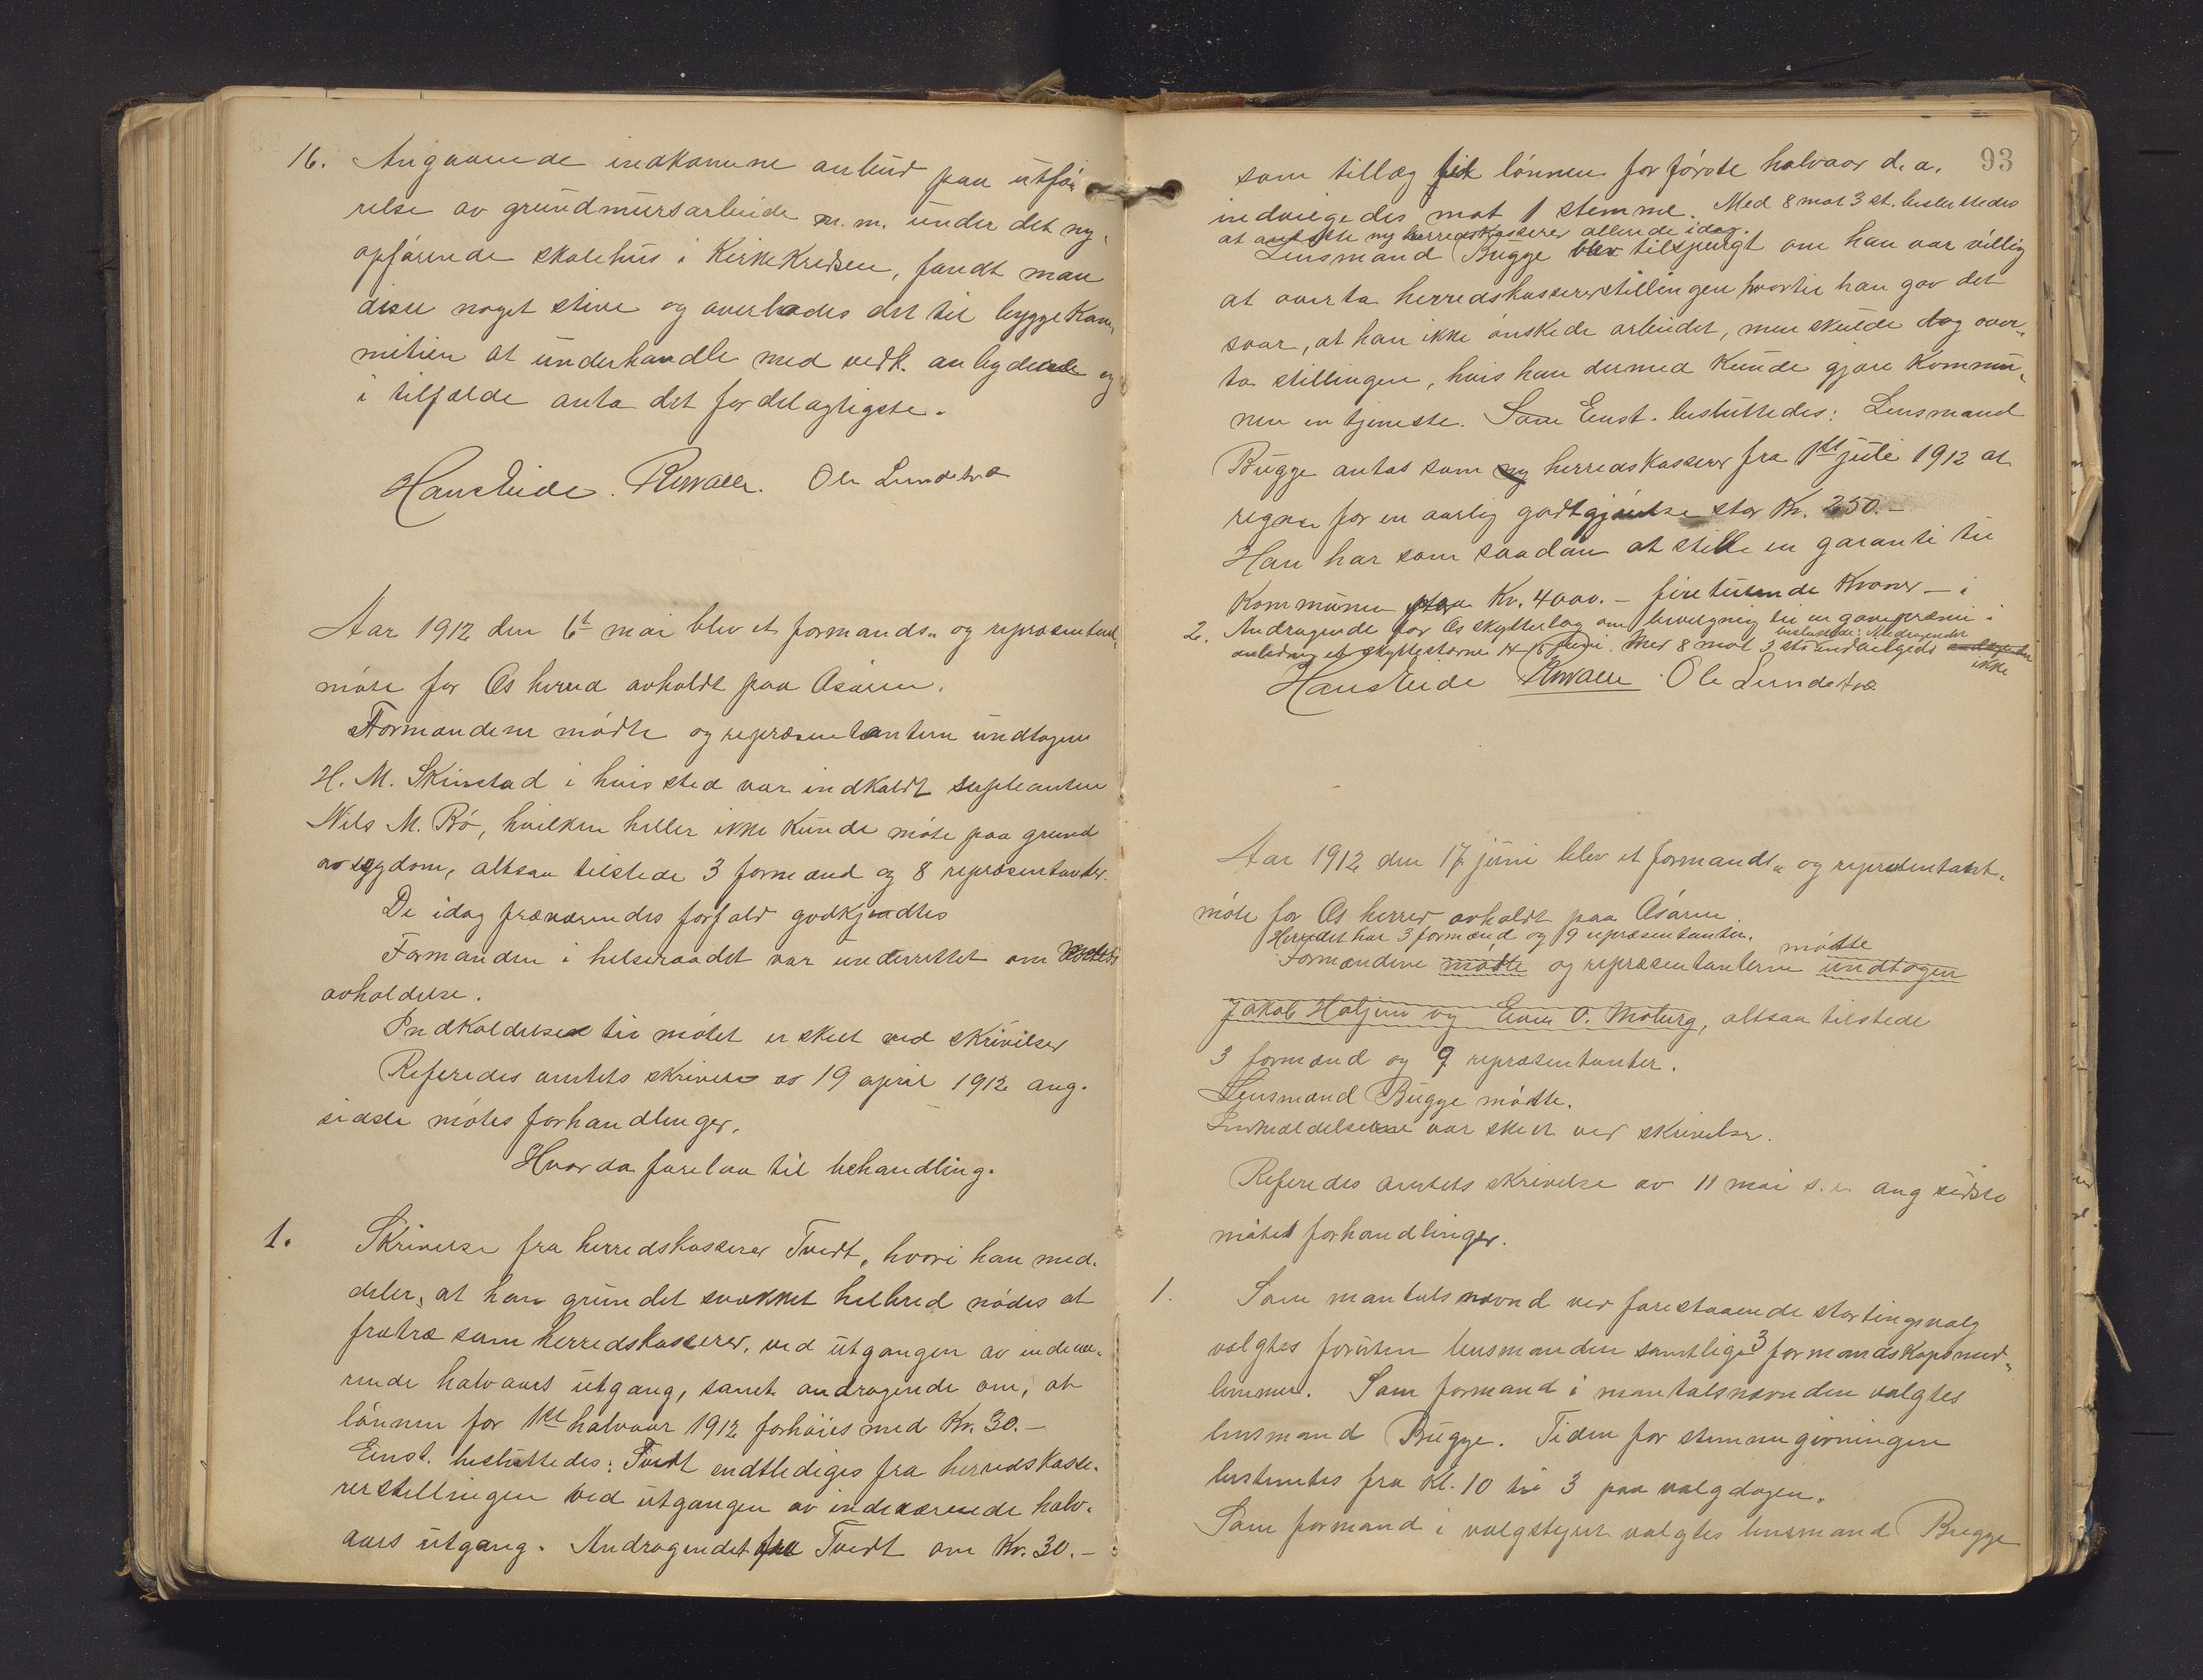 16. Angaaende indkomne anbud paa utfø-
relse av grundmursarbeide m. m. under det ny-
opførende skolehus i Kirkekredsen, fandt man
disse noget stive og overlodes det til byggekom-
miteen at underhandle med vedk. anbydende og
i tilfælde anta det fordelagtigste.
Hans Eide. Ole Lundetræ
Aar 1912 den 6t mai blev et formands- og repræsentant-
møte for Os herred avholdt paa Osøren.
Formændene mødte og repræsentanterne undtagen
H. M. Skinstad i hvis sted var indkaldt supleanten
Nils M. Rø, hvilken heller ikke kunde møte paa grund
av sygdom, altsaa tilstede 3 formænd og 8 repræsentanter.
De idag fraværendes forfald godkjendtes
Formanden i helseraadet var underrettet om møtets
avholdelse.
Indkaldelse til møtet er skeet ved skrivelser
Referedes amtets skrivelse av 19 april 1912 ang.
sidste møtes forhandlinger.
Hvorda forelaa til behandling.
1. Skrivelse fra herredskasserer Tveit, hvori han med-
deler, at han grundet svækket helbred nødes at
fratræ som herredskasserer, ved utgangen av indevæ-
rende halvaars utgang, samt andragende om, at
lønnen for 1ste halvaar 1912 forhøies med Kr. 30.-
Enst. besluttedes: Tveit entlediges fra herredskasse-
rerstillingen ved utgangen av indeværende halv-
aars utgang. Andragendet fra Tveit om Kr. 30.-
93
som tillæg til lønnen for første halvaar d. a.
indvilgedes mot 1 stemme. Med 8 mot 3 st. besluttedes
at ansætte ny herredskasserer allerede idag.
Lensmand Bugge blev tilspurgt om han var villig
at overta herredskassererstillingen hvortil han gav det
svar, at han ikke ønskede arbeidet, men skulde dog over-
ta stillingen, hvis han dermed kunde gjøre kommu-
nen en tjeneste. Som Enst. besluttedes: Lensmand
Bugge antas som ny herredskasserer fra 1ste juli 1912 at
regne for en aarlig godtgjørelse stor Kr. 250.-
Han har som saadan at stille en garanti til
Kommunen stor Kr. 4000.- firetusende Kroner -
2. Andragende for Os skytterlag om bevilgning til en gavepræmie i
anledning et skytterstevne 14-15 juni. Med 8 mot 3 st. besluttedes: Andragendet
indvilgedes andragendet ikke
Hans Eide Ole Lundetræ
Aar 1912 den 17 juni blev et formands- og repræsentant-
møte for Os herred avholdt paa Osøren.
Herredet har 3 formænd og 9 repræsentanter.
Formændene mødte og repræsentanterne mødte undtagen
Jakob Haljem og Einar O. Moberg, altsaa tilstede
3 formænd og 9 repræsentanter.
Lensmand Bugge mødte.
Indkaldelserne var skeet ved skrivelse.
Referedes amtets skrivelse av 11 mai d. a. ang sidste
møtes forhandlinger.
1. Som mantalsnævnd ved forestaaende stortingsvalg
valgtes foruten lensmanden samtlige 3 formandskapsmed-
lemmer. Som formand i mantalsnævnden valgtes
lensmand Bugge. Tiden for stemmegivningen
bestemtes fra Kl. 10 til 3 paa valgdagen.
Som formand i valgstyret valgtes lensmand Bugge